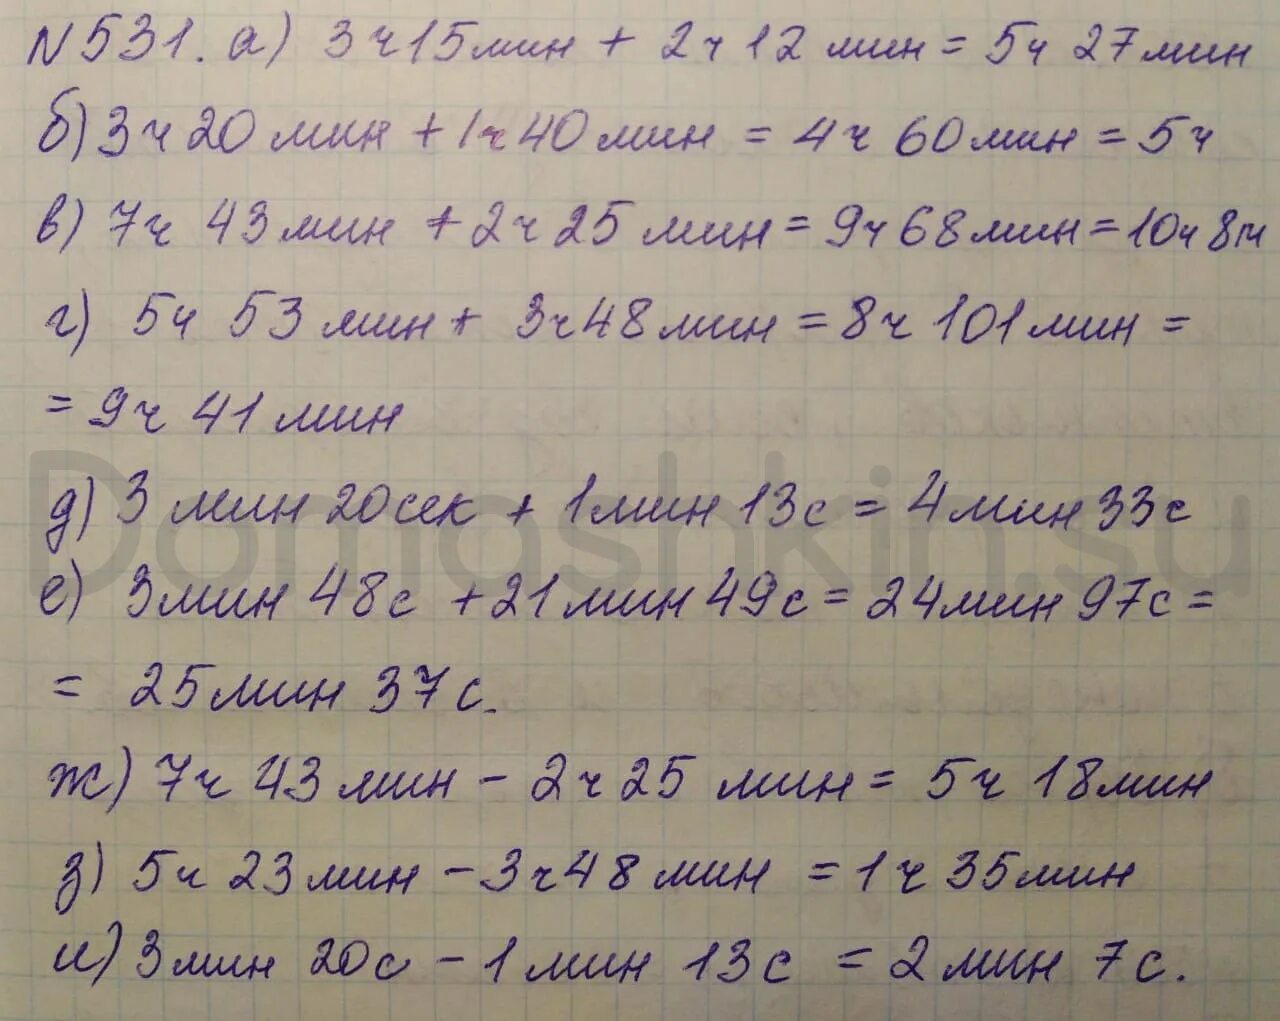 №531. а) 3ч15мин + 2ч 12 мин = 5ч 27мин
б) 3ч 20 мин + 1ч 40 мин = 4ч 60мин = 5ч
в) 7ч 43 мин + 2ч 25 мин = 9ч 68 мин = 10ч 8м
г) 5ч 53 мин + 3ч48 мин = 8ч 101 мин =
= 9ч 41 мин
Domashkin.su
д) 3 мин 20сек + 1мин 13с = 4мин 33с
е) 3мин 48с + 21мин 49с = 24мин 97с =
= 25мин 37с.
ж) 7ч 43 мин - 2ч 25 мин = 5ч 18мин
з) 5ч 23мин - 3ч48 мин = 1ч 35мин
и) 3мин 20с - 1 мин 13с = 2 мин 7с.